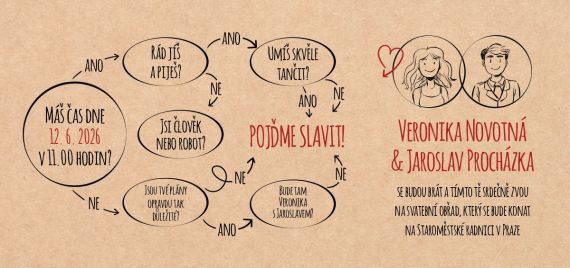 MÁŠ ČAS DNE
12. 6. 2026
V 11.00 HODIN?
ANO
RÁD JÍŠ
A PIJEŠ?
ANO
UMÍŠ SKVĚLE
TANČIT?
NE
ANO
NE
JSI ČLOVĚK
NEBO ROBOT?
POJĎME SLAVIT!
NE
JSOU TVÉ PLÁNY
OPRAVDU TAK
DŮLEŽITÉ?
NE
ANO
BUDE TAM
VERONIKA
S JAROSLAVEM?
NE
VERONIKA NOVOTNÁ
& JAROSLAV PROCHÁZKA
SE BUDOU BRÁT A TÍMTO TĚ SRDEČNĚ ZVOU
NA SVATEBNÍ OBŘAD, KTERÝ SE BUDE KONAT
NA STAROMĚSTSKÉ RADNICI V PRAZE